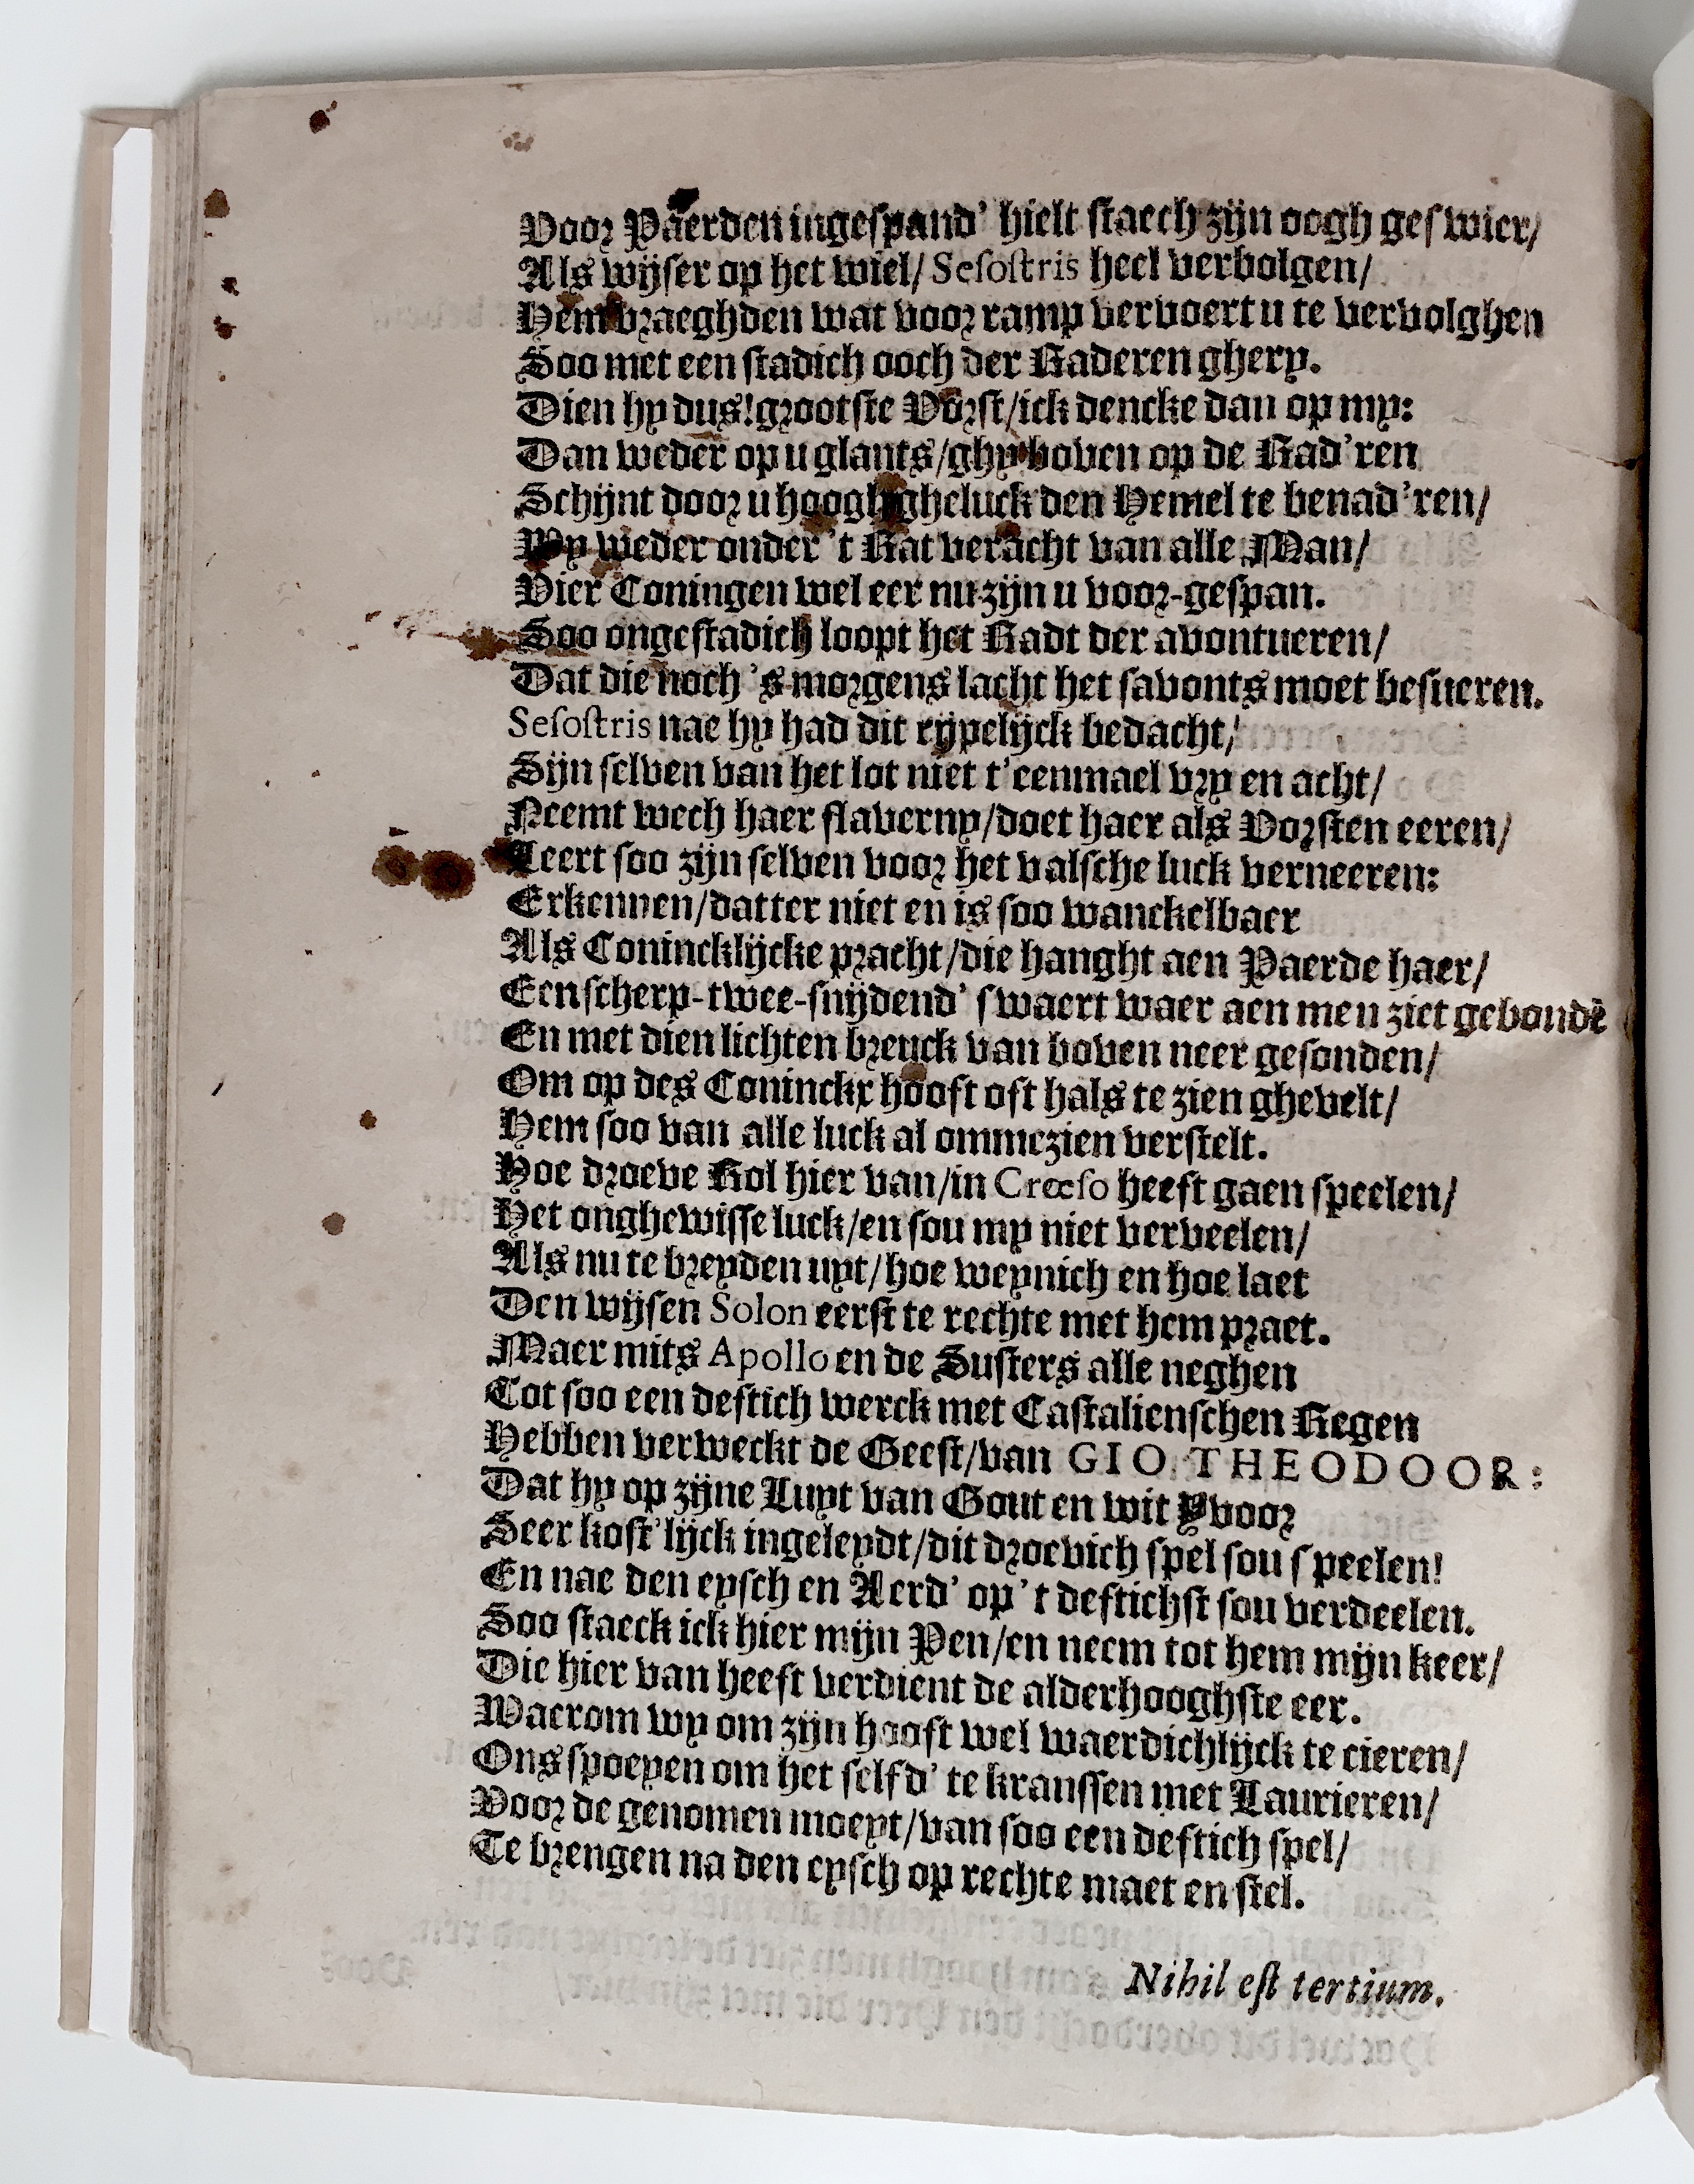 Voor Paerden ingespand' hielt staech zijn oogh geswier/
Als wijser op het wiel/ Sesostris heel verbolgen/
Hem vraeghden wat voor ramp vervoert u te vervolghen
Soo met een stadich ooch der Raderen ghery.
Dien hy dus! grootste Vorst/ick dencke dan op my:
Dan weder op u glants/ghy boven op de Rad'ren
Schijnt door u hoogh gheluck den Hemel te benad'ren/
Wy weder onder 't Rat veracht van alle Man/
Vier Coningen wel eer nu zijn u voor-gespan.
Soo ongestadich loopt het Radt der avontueren/
Dat die noch 's morgens lacht het savonts moet besueren.
Sesostris nae hy had dit rijpelijck bedacht/
Sijn selven van het lot niet t'eenmael vry en acht/
Neemt wech haer slaverny/doet haer als Vorsten eeren/
Leert soo zijn selven voor het valsche luck verneeren:
Erkennen/datter niet en is soo wanckelbaer
Als Conincklijcke pracht/die hanght aen Paerde haer/
Een scherp-twee-snijdend' swaert waer aen men ziet gebondē
En met dien lichten breuck van boven neer gesonden/
Om op des Coninckx hooft oft hals te zien ghevelt/
Hem soo van alle luck al ommezien verstelt.
Hoe droeve Rol hier van/in Crœso heeft gaen speelen/
Het onghewisse luck/en sou my niet verveelen/
Als nu te breyden uyt/hoe weynich en hoe laet
Den wijsen Solon eerst te rechte met hem praet.
Maer mits Apollo en de Susters alle neghen
Tot soo een deftich werck met Castalienschen Regen
Hebben verweckt de Geest/van GIO. THEODOOR:
Dat hy op zijne Luyt van Gout en wit Yvoor
Seer kost'lijck ingeleydt/dit droevich spel sou speelen!
En nae den eysch en Aerd' op 't deftichst sou verdeelen.
Soo staeck ick hier mijn Pen/en neem tot hem mijn keer/
Die hier van heeft verdient de alderhooghste eer.
Waerom wy om zijn hooft wel waerdichlijck te cieren/
Ons spoeyen om het selfd' te kranssen met Laurieren/
Voor de genomen moeyt/van soo een deftich spel/
Te brengen na den eysch op rechte maet en stel.
Nihil est tertium.